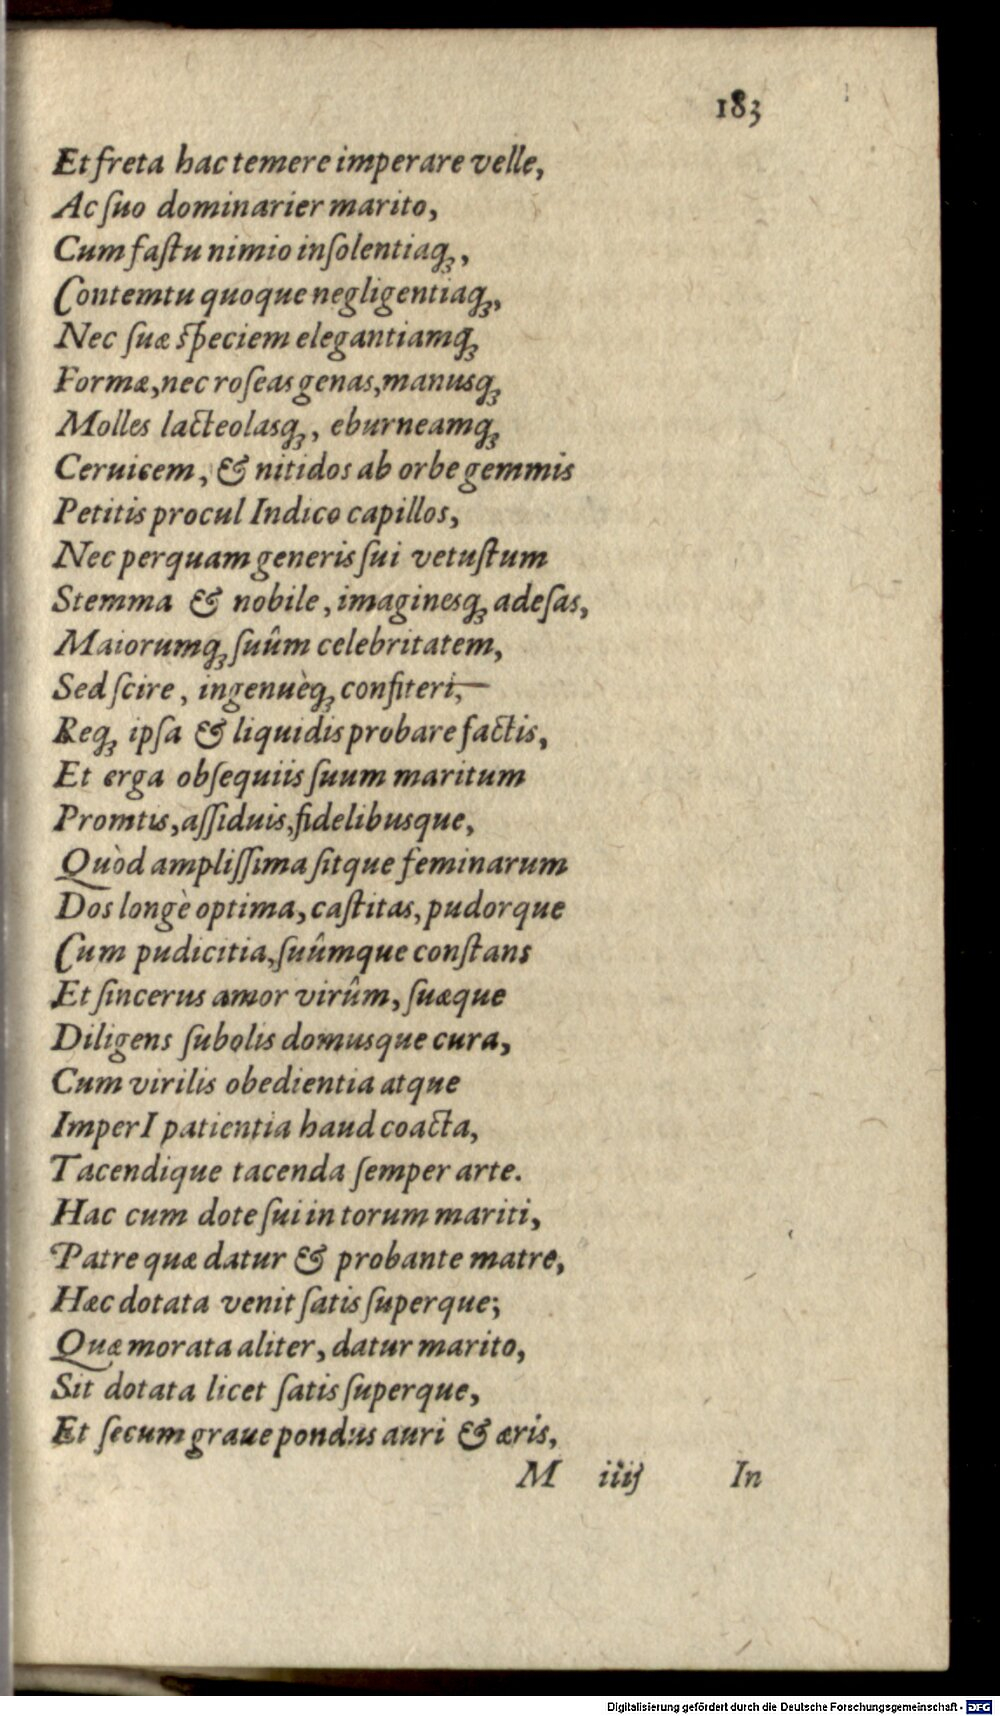 183
Et freta hac temere imperare velle,
Ac ſuo dominarier marito,
Cum faſtu nimio inſolentiaq́ꝫ,
Contemtu quoque negligentiaq́ꝫ,
Nec ſuæ ſpeciem elegantiamq́ꝫ
Formæ, nec roſeas genas, manusq́ꝫ
Molles lacteolasq́ꝫ, eburneamq́ꝫ
Ceruicem, & nitidos ab orbe gemmis
Petitis procul Indico capillos,
Nec perquam generis ſui vetuſtum
Stemma & nobile, imaginesq́ꝫ adeſas,
Maiorumq́ꝫ ſuûm celebritatem,
Sed ſcire, ingenuèq́ꝫ confiteri,
Req́ꝫ ipſa & liquidis probare factis,
Et erga obſequiis ſuum maritum
Promtis, aſſiduis, fidelibusque,
Quòd ampliſſima ſitque feminarum
Dos longè optima, caſtitas, pudorque
Cum pudicitia, ſuûmque conſtans
Et ſincerus amor virûm, ſuæque
Diligens ſubolis domusque cura,
Cum virilis obedientia atque
ImperI patientia haud coacta,
Tacendique tacenda ſemper arte.
Hac cum dote ſui in torum mariti,
Patre quæ datur & probante matre,
Hæc dotata venit ſatis ſuperque;
Quæ morata aliter, datur marito,
Sit dotata licet ſatis ſuperque,
Et ſecum graue pondus auri & æris,
M iiij In
Digitalisierung gefördert durch die Deutsche Forschungsgemeinschaft - DFG